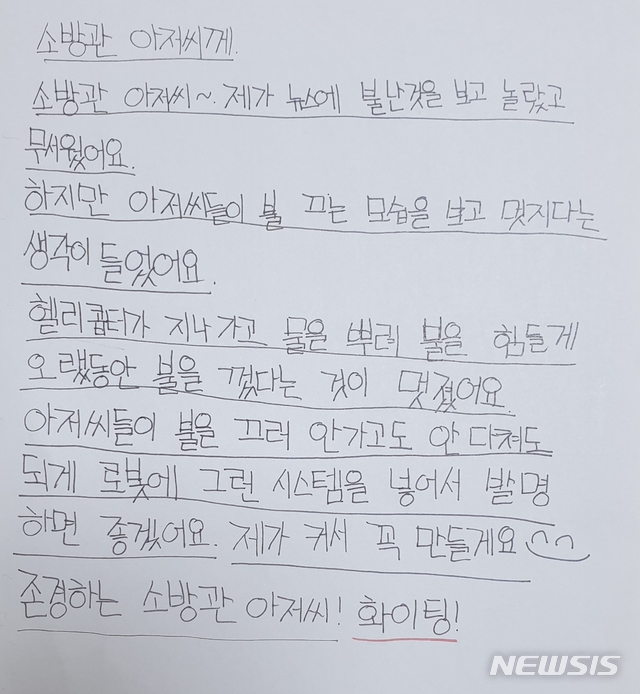 소방관 아저씨께.
소방관 아저씨~ 제가 뉴스에 불난것을 보고 놀랐고
무서웠어요.
하지만 아저씨들이 불 끄는 모습을 보고 멋지다는
생각이 들었어요.
헬리콥터가 지나가고 물을 뿌려 불을 힘들게
오랬동안 불을 껐다는 것이 멋졌어요.
아저씨들이 불을 끄러 안가고도 안 다쳐도
되게 로봇에 그런 시스템을 넣어서 발명
하면 좋겠어요. 제가 커서 꼭 만들게요
존경하는 소방관 아저씨! 화이팅!
NEWSIS